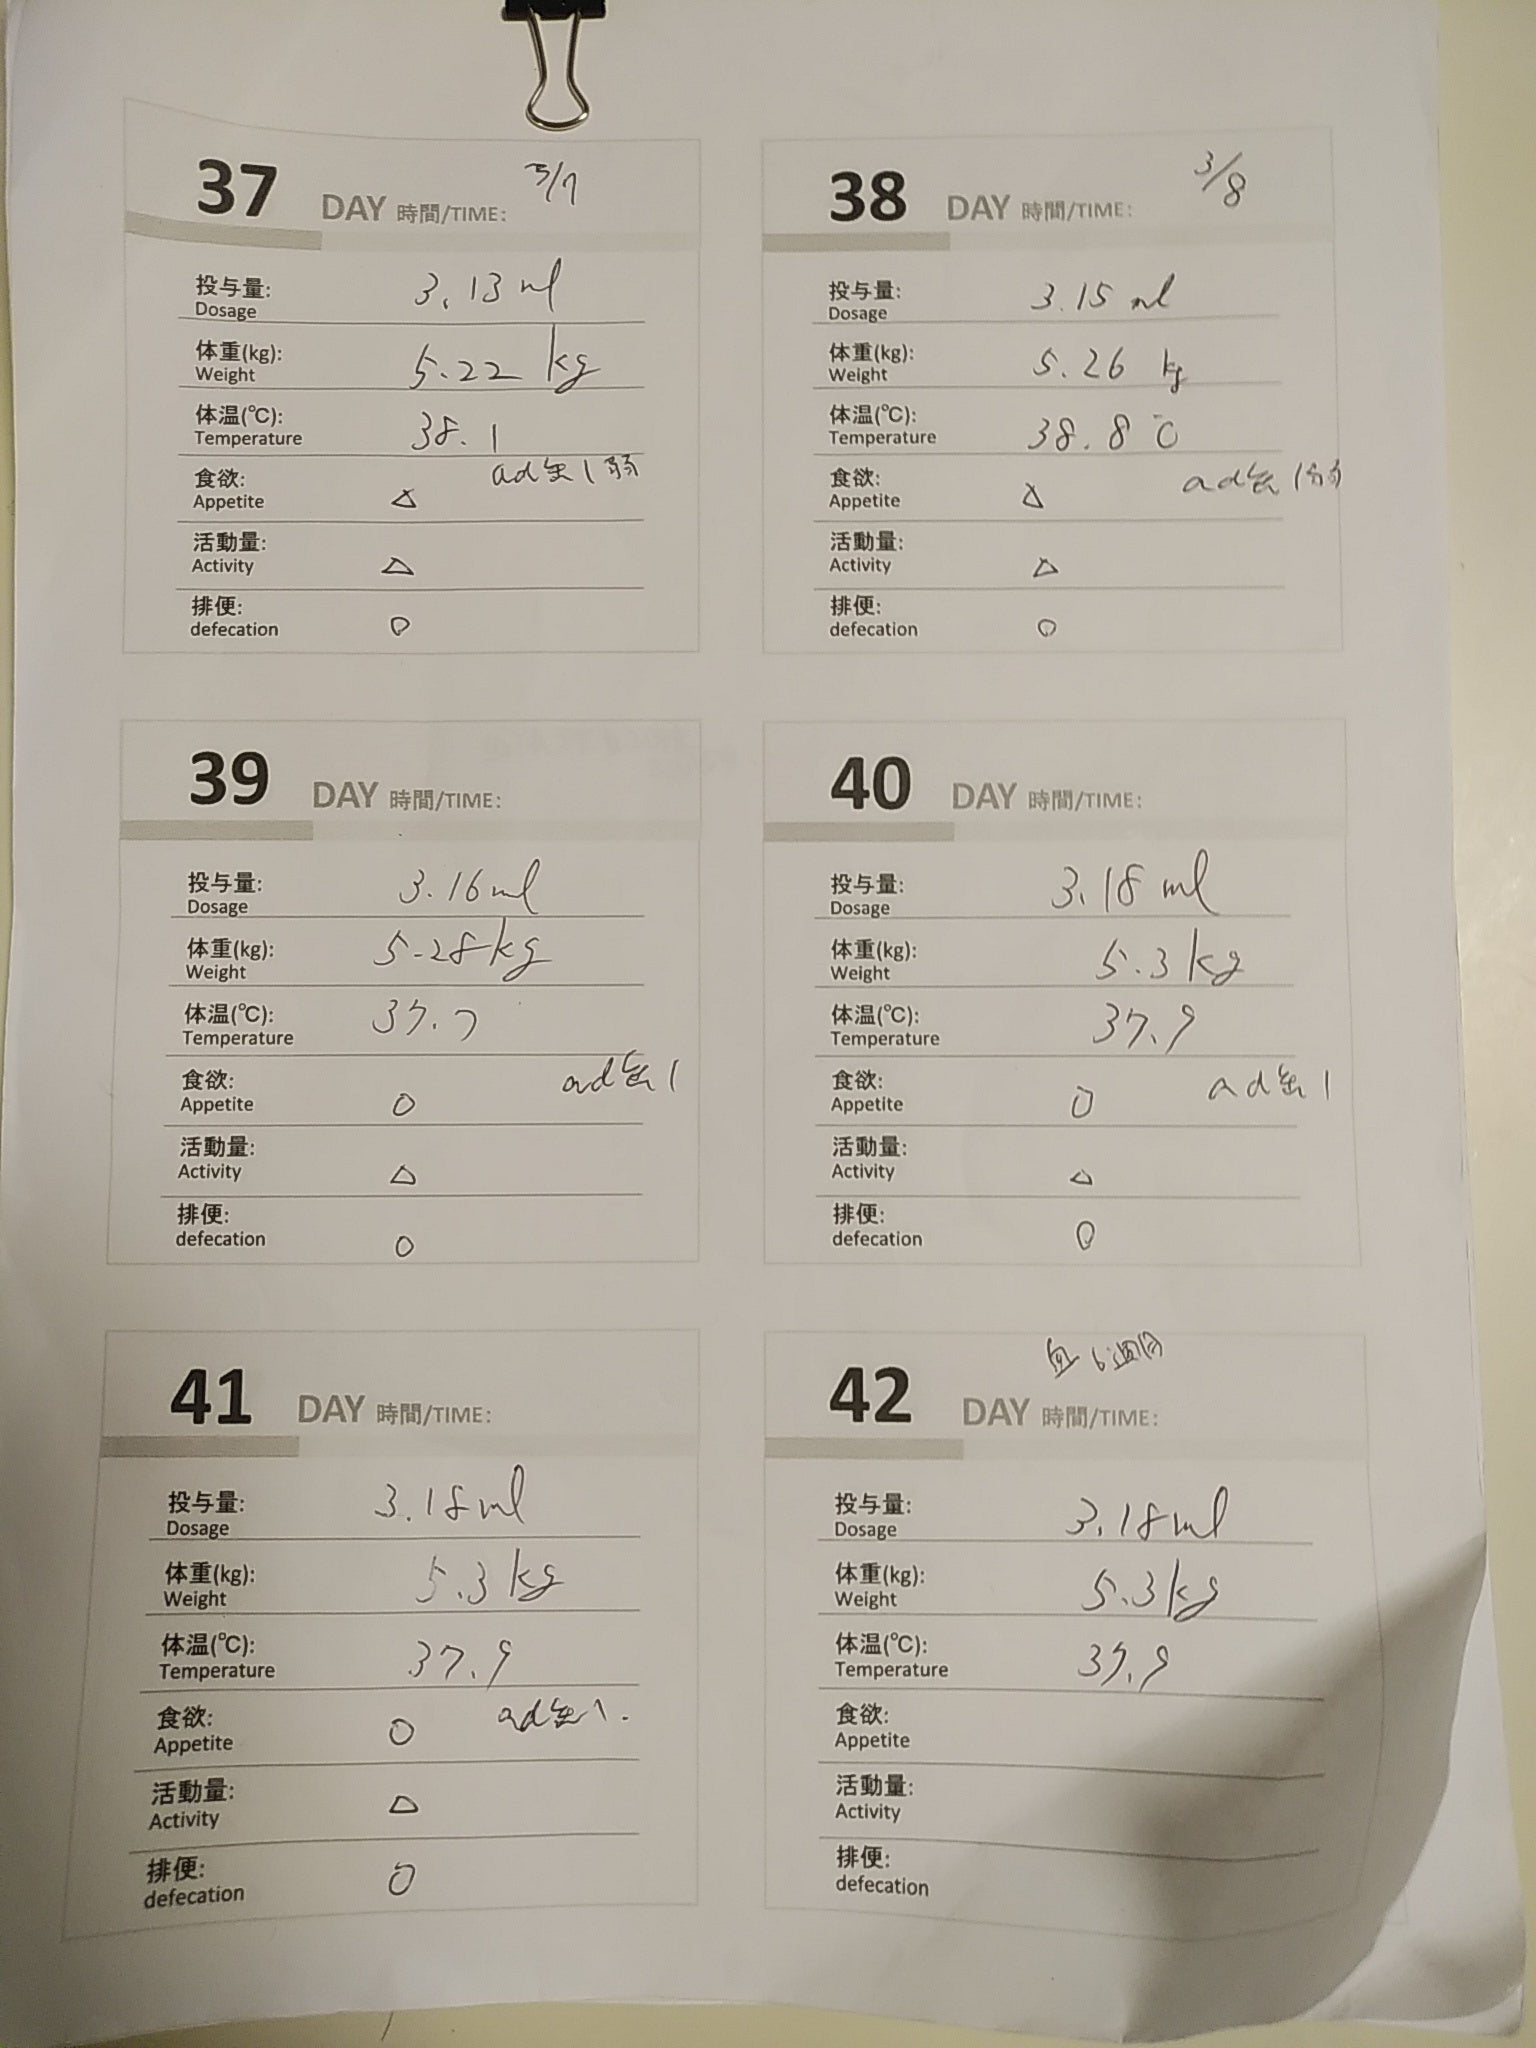 37 DAY 時間/TIME: 3/7
投与量: 3.13 ml
Dosage
体重(kg): 5.22 kg
Weight
体温(℃): 38.1
Temperature
食欲: ad缶1弱
Appetite △
活動量:
Activity △
排便:
defecation ○
38 DAY 時間/TIME: 3/8
投与量: 3.15 ml
Dosage
体重(kg): 5.26 kg
Weight
体温(℃): 38.8℃
Temperature
食欲: ad缶1弱
Appetite △
活動量:
Activity △
排便:
defecation ○
39 DAY 時間/TIME:
投与量: 3.16ml
Dosage
体重(kg): 5.28kg
Weight
体温(℃): 37.7
Temperature
食欲: ad缶1
Appetite ○
活動量:
Activity △
排便:
defecation ○
40 DAY 時間/TIME:
投与量: 3.18 ml
Dosage
体重(kg): 5.3kg
Weight
体温(℃): 37.9
Temperature
食欲: ad缶1
Appetite ○
活動量:
Activity △
排便:
defecation ○
41 DAY 時間/TIME:
投与量: 3.18ml
Dosage
体重(kg): 5.3kg
Weight
体温(℃): 37.9
Temperature
食欲: ad缶1.
Appetite ○
活動量:
Activity △
排便:
defecation ○
6週目
42 DAY 時間/TIME:
投与量: 3.18ml
Dosage
体重(kg): 5.3kg
Weight
体温(℃): 37.9
Temperature
食欲:
Appetite
活動量:
Activity
排便:
defecation